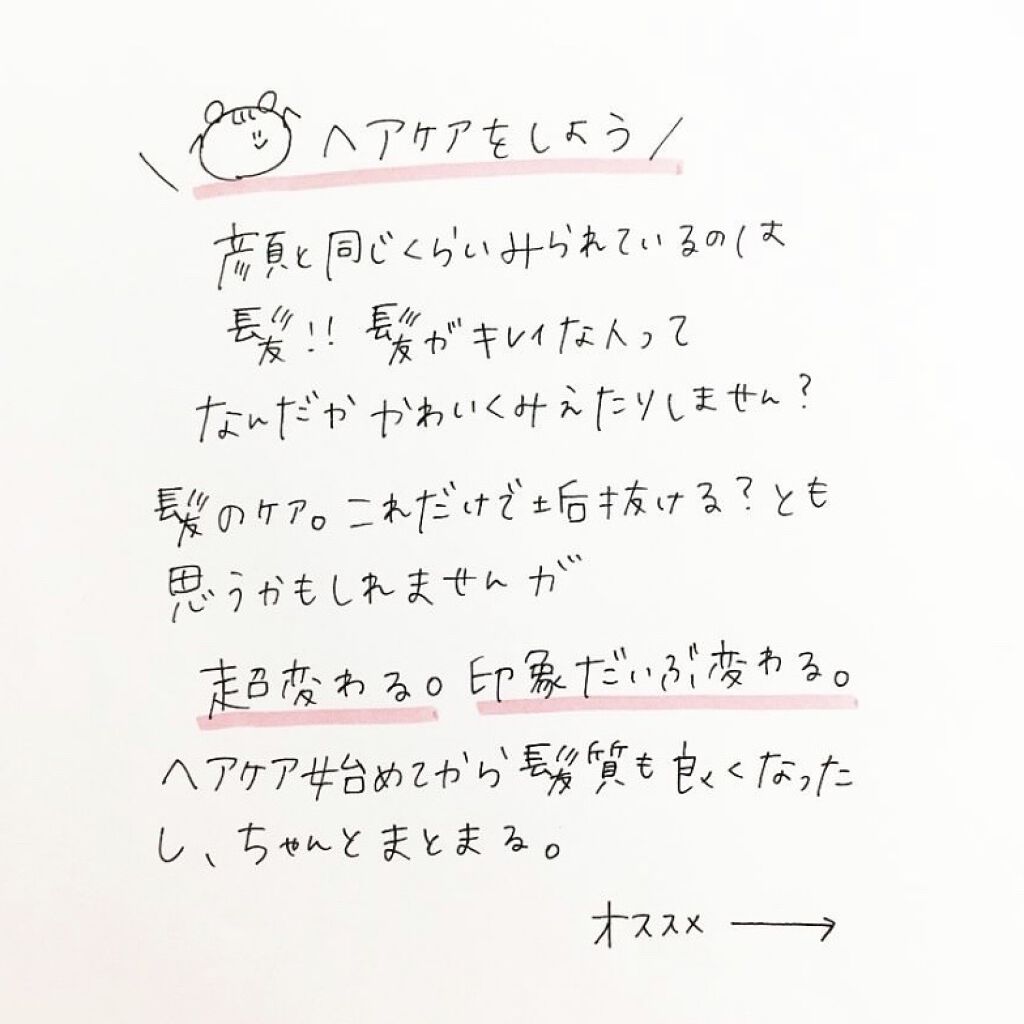 \ ヘアケアをしよう /
顔と同じくらいみられているのは
髪!! 髪がキレイな人って
なんだか かわいくみえたりしません?
髪のケア。これだけで垢抜ける?とも
思うかもしれませんが
超変わる。印象だいぶ変わる。
ヘアケア始めてから髪質も良くなった
し、ちゃんとまとまる。
オススメ ⟶